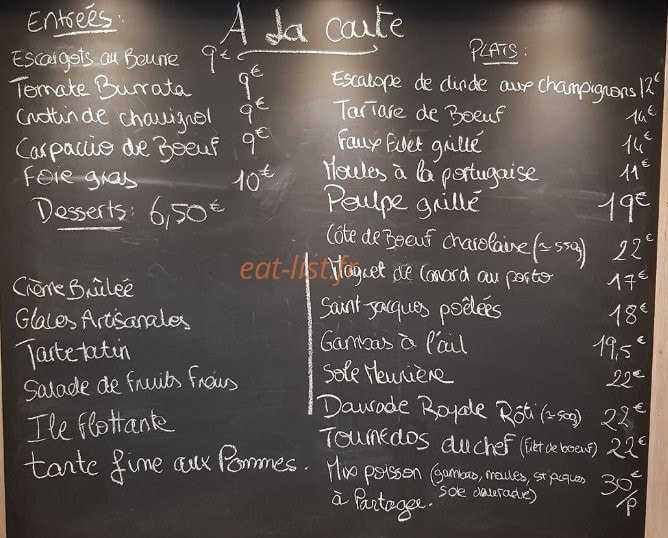 A La Carte
Entrées:
Escargots au Beurre 9€
Tomate Burrata 9€
Crottin de chavignol 9€
Carpaccio de Boeuf 9€
Foie gras 10€
Desserts: 6,50€
Crème Brûlée
Glaces Artisanales
Tarte tatin
Salade de fruits frais
Ile flottante
tarte fine aux Pommes.
PLATS:
Escalope de dinde aux champignons 12€
Tartare de Boeuf 14€
Faux filet grillé 14€
Moules à la portugaise 11€
Poulpe grillé 19€
Côte de Boeuf charolaise (~550g) 22€
Magret de Canard au porto 17€
Saint-Jacques poêlées 18€
Gambas à l'ail 19,5€
Sole Meunière 22€
Daurade Royale Rôti (~500g) 22€
Tournedos du chef (filet de boeuf) 22€
Mix poisson (gambas, moules, st jacques 30€
à Partager. sole daurade) /P
eat-list.fr